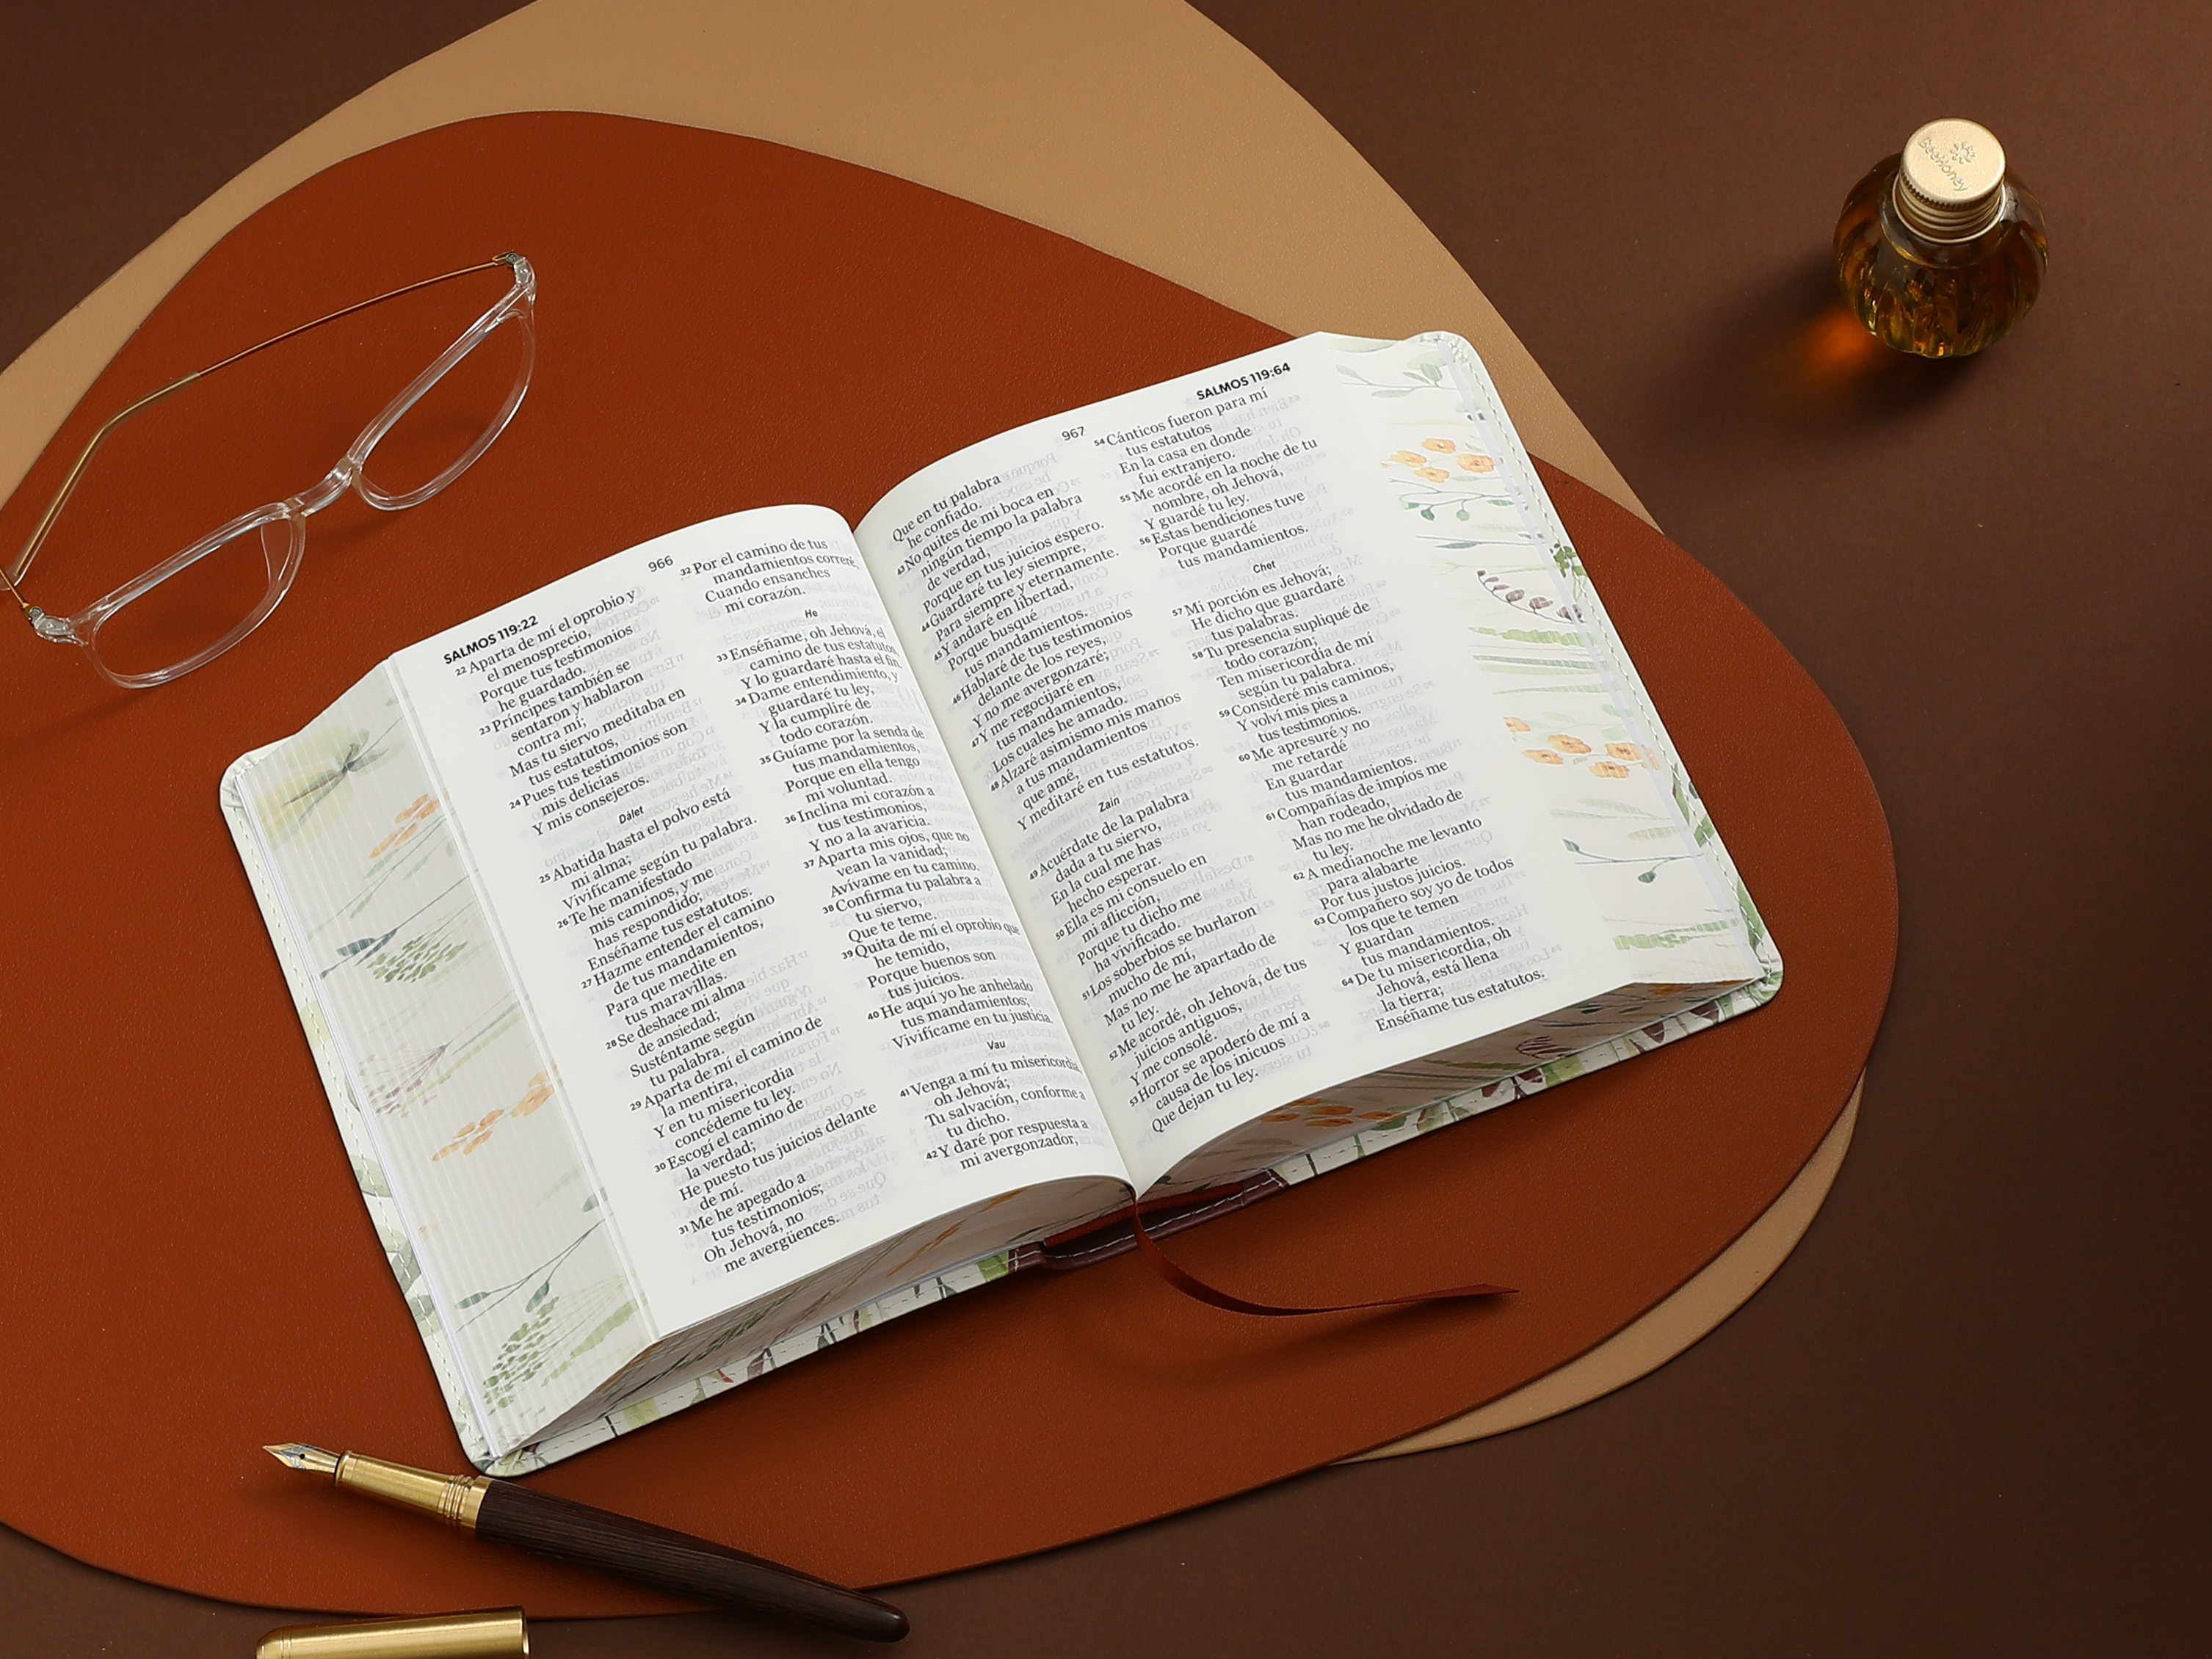 SALMOS 119:22
966
22 Aparta de mí el oprobio y
el menosprecio,
Porque tus testimonios
he guardado.
23 Príncipes también se
sentaron y hablaron
contra mí;
Mas tu siervo meditaba en
tus estatutos,
24 Pues tus testimonios son
mis delicias
Y mis consejeros.
Dálet
25 Abatida hasta el polvo está
mi alma;
Vivifícame según tu palabra.
26 Te he manifestado
mis caminos, y me
has respondido;
Enséñame tus estatutos.
27 Hazme entender el camino
de tus mandamientos,
Para que medite en
tus maravillas.
28 Se deshace mi alma
de ansiedad;
Susténtame según
tu palabra.
29 Aparta de mí el camino de
la mentira,
Y en tu misericordia
concédeme tu ley.
30 Escogí el camino de
la verdad;
He puesto tus juicios delante
de mí.
31 Me he apegado a
tus testimonios;
Oh Jehová, no
me avergüences.
32 Por el camino de tus
mandamientos correré,
Cuando ensanches
mi corazón.
He
33 Enséñame, oh Jehová, el
camino de tus estatutos,
Y lo guardaré hasta el fin.
34 Dame entendimiento, y
guardaré tu ley,
Y la cumpliré de
todo corazón.
35 Guíame por la senda de
tus mandamientos,
Porque en ella tengo
mi voluntad.
36 Inclina mi corazón a
tus testimonios,
Y no a la avaricia.
37 Aparta mis ojos, que no
vean la vanidad;
Avívame en tu camino.
38 Confirma tu palabra a
tu siervo,
Que te teme.
39 Quita de mí el oprobio que
he temido,
Porque buenos son
tus juicios.
40 He aquí yo he anhelado
tus mandamientos;
Vivifícame en tu justicia.
Vau
41 Venga a mí tu misericordia,
oh Jehová;
Tu salvación, conforme a
tu dicho.
42 Y daré por respuesta a
mi avergonzador,
967
SALMOS 119:64
Que en tu palabra
he confiado.
43 No quites de mi boca en
ningún tiempo la palabra
de verdad,
Porque en tus juicios espero.
44 Guardaré tu ley siempre,
Para siempre y eternamente.
45 Y andaré en libertad,
Porque busqué
tus mandamientos.
46 Hablaré de tus testimonios
delante de los reyes,
Y no me avergonzaré;
47 Y me regocijaré en
tus mandamientos,
Los cuales he amado.
48 Alzaré asimismo mis manos
a tus mandamientos
que amé,
Y meditaré en tus estatutos.
Zain
49 Acuérdate de la palabra
dada a tu siervo,
En la cual me has
hecho esperar.
50 Ella es mi consuelo en
mi aflicción,
Porque tu dicho me
ha vivificado.
51 Los soberbios se burlaron
mucho de mí,
Mas no me he apartado de
tu ley.
52 Me acordé, oh Jehová, de tus
juicios antiguos,
Y me consolé.
53 Horror se apoderó de mí a
causa de los inicuos
Que dejan tu ley.
54 Cánticos fueron para mí
tus estatutos
En la casa en donde
fui extranjero.
55 Me acordé en la noche de tu
nombre, oh Jehová,
Y guardé tu ley.
56 Estas bendiciones tuve
Porque guardé
tus mandamientos.
Chet
57 Mi porción es Jehová;
He dicho que guardaré
tus palabras.
58 Tu presencia supliqué de
todo corazón;
Ten misericordia de mí
según tu palabra.
59 Consideré mis caminos,
Y volví mis pies a
tus testimonios.
60 Me apresuré y no
me retardé
En guardar
tus mandamientos.
61 Compañías de impíos me
han rodeado,
Mas no me he olvidado de
tu ley.
62 A medianoche me levanto
para alabarte
Por tus justos juicios.
63 Compañero soy yo de todos
los que te temen
Y guardan
tus mandamientos.
64 De tu misericordia, oh
Jehová, está llena
la tierra;
Enséñame tus estatutos.
BeeHoney